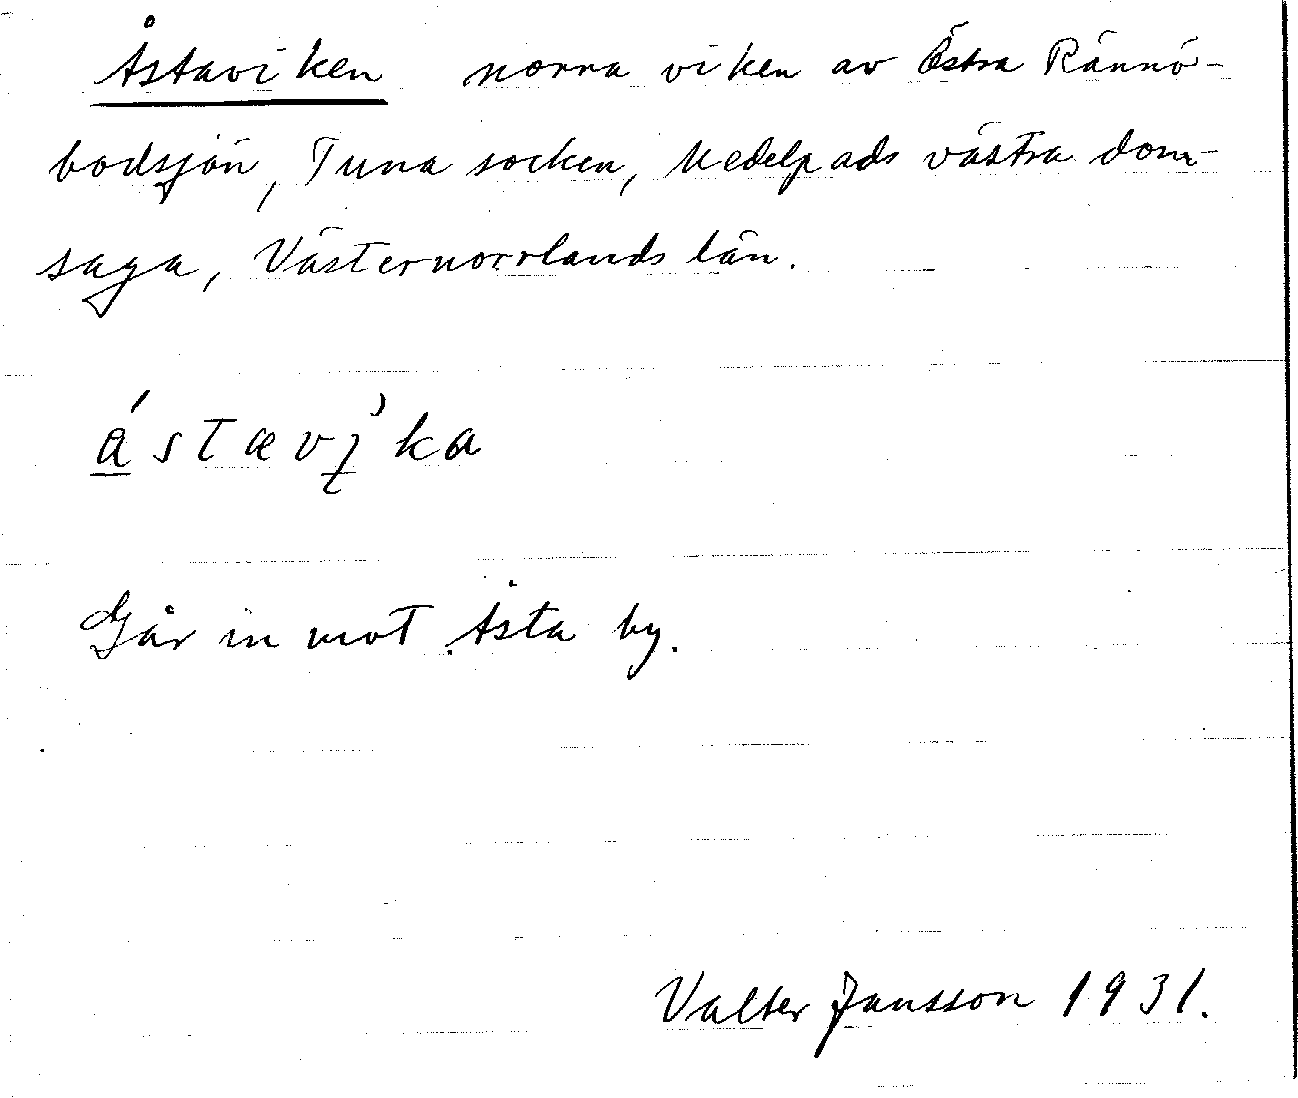 Åstaviken norra viken av Östra Rännö-
bodsjön, Tuna socken, Medelpads västra dom-
saga, Västernorrlands län.
ástavì̯ka
Går in mot Åsta by.
Valter Jansson 1931.